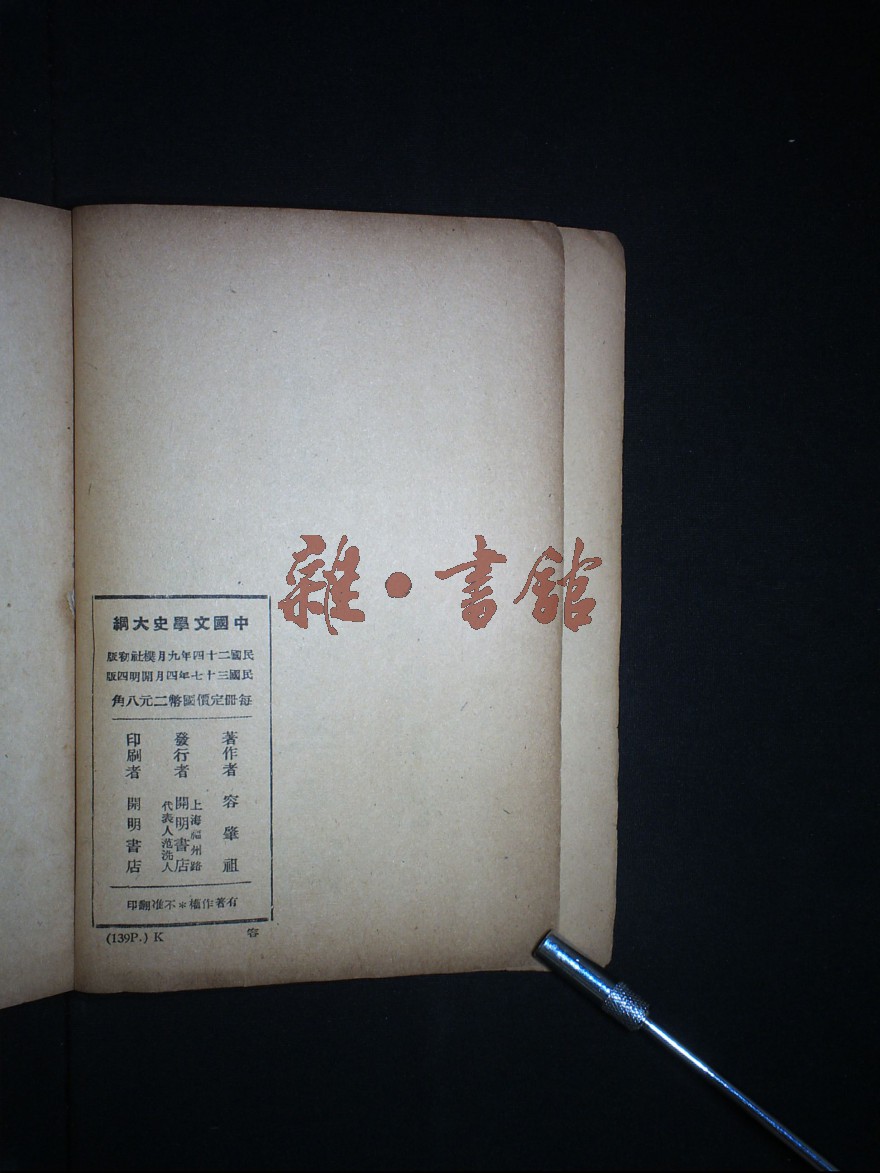 中國文學史大綱
民國二十四年九月樸社初版
民國三十七年四月開明四版
每冊定價國幣二元八角
著作者 容肇祖
發行者 上海福州路 開明書店 代表人范洗人
印刷者 開明書店
有著作權＊不准翻印
(139P.) K 容
雜·書館